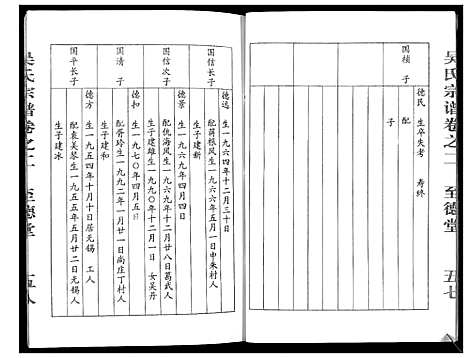 吴氏宗谱卷之二 至德堂 五七
国桢 子
德民 生卒失考 寿终
配
子
国信长子
德远 生一九六四年十二月三十日
配蒋根凤生一九六六年五月一日申朱村人
生子建新
国信次子
德景 生一九六九年四月四日
配仇海风生一九六六年十二月八日葛武人
生子建雄生一九九〇年十二月一日 女吴丹
国清 子
德扣 生一九七〇年四月五日
配胥玲生一九九二年一月廿一日尚庄丁村人
生子建和
国平长子
德方 生一九五四年十月十日居无锡 工人
配袁美琴生一九五五年五月廿二日无锡人
生子建冰
吴氏宗谱卷之二 至德堂 五八